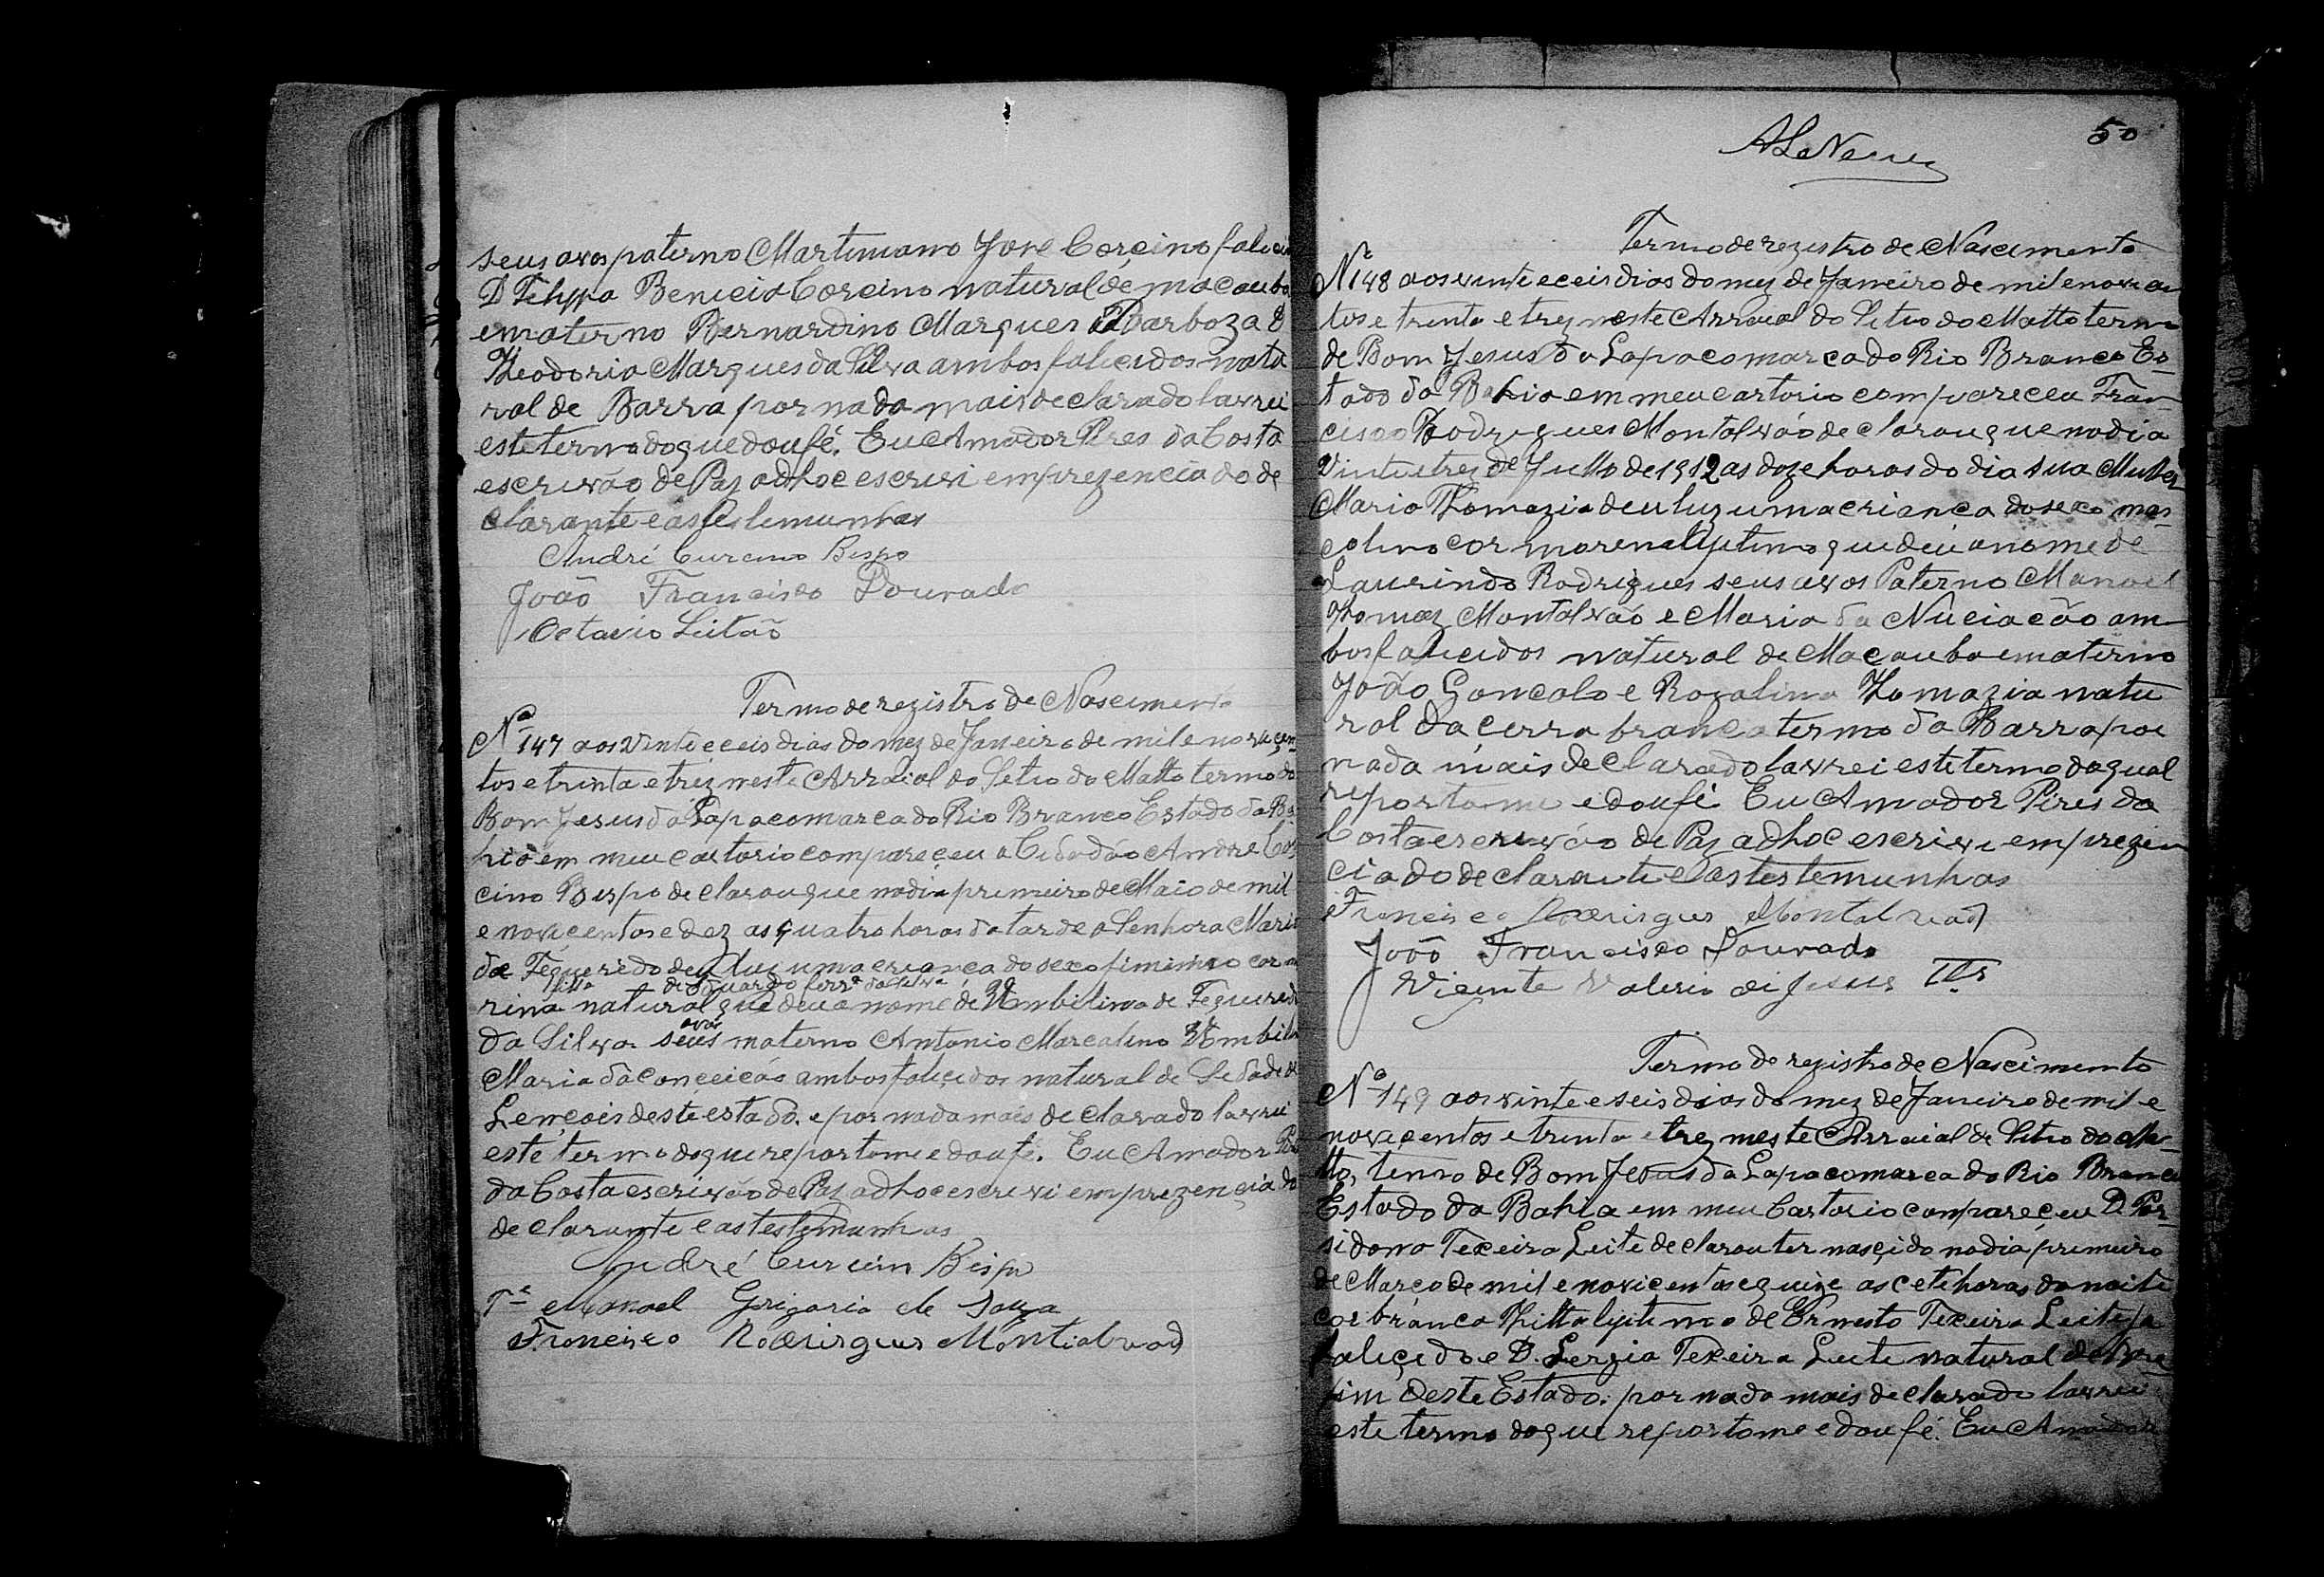 seus avos paterno Martiniano Jose Corcino falici
D Felippa Benicia Corcino natural de macauba
ematerno Bernardino Marques Barboza D
Theodoria Marques da Silva ambos falicidos natu
ral de Barra por nada mais declarado lavrei
este termo do que dou fé. Eu Amador Pires da Costa
escrivão de Paz adhoc escrevi em prezencia do de
clarante e as testemunhas
André Curcino Bispo
João Francisco Dourado
Octavio Leitão
Termo de registro de Nascimento
Nº 147 aos vinte e ceis dias do mez de Janeiro de mil e noveçen
tos e trinta e trez neste Arraial do Sitio do Matto termo do
Bom Jesus da Lapa comarca do Rio Branco Estado da Ba
hia em meu cartorio compareçeu o Cidadão Andre Cor
cino Bispo declarou que no dia primeiro de Maio de mil
e noveçentos e dez as quatro horas da tarde a Senhora Maria
de Fegueredo deu luz uma criança do sexo fiminino cor mo
filla de Eduardo Ferrª da Silva
rina natural que deu o nome de Umbilina de Feguered
avos
da Silva seus materno Antonio Marcalino Umbili
Maria da Conceicão ambos falicidos natural de Sidade de
Lençois deste estado. e por nada mais declarado lavrei
este termo do que reportome e dou fé. Eu Amador Pires
da Costa escrivão de Paz adhoc escrevi em prezençia do
declarante e as testemunhas
André Curcino Bispo
Tª Manoel Grigorio de Souza
Francisco Rodrigues Montalvaod
50
Termo de registro de Nascimento
Nº 148 aos vinte e ceis dias do mez de Janeiro de mil e novecen
tos e trinta e trez neste Arraial do Sitio do Matto termo
de Bom Jesus da Lapa comarca do Rio Branco Es-
tado da Bahia em meu cartorio compareceu Fran-
cisco Rodrigues Montalvão declarou que no dia
vinte e trez de Julho de 1912 as doze horas do dia sua Mulher
Maria Thomazia deu luz uma criança do sexo mas-
colino cor morena ligitimo que deu o nome de
Laurindo Rodrigues seus avos Paterno Manoel
Thomaz Montalvão e Maria da Nuciacão am-
bos falicidos natural de Macauba ematerno
João Goncalo e Rozalina Thomazia natu
ral da cerra branca termo da Barra por
nada mais declarado lavrei este termo do qual
reportome e dou fé Eu Amador Pires da
Costa escrivão de Paz adhoc escrivi em prezen
cia do declarante e as testemunhas
Francisco Rodrigues Montalvaod
João Francisco Dourado
Vicente Valerio de Jesus
Termo de registro de Nascimento
Nº 149 aos vinte e seis dias do mez de Janeiro de mil e
noveçentos e trinta e trez neste Arraial de Sitio do Ma-
tto, termo de Bom Jesus da Lapa comarca do Rio Branco
Estado da Bahia em meu Cartorio compareçeu D. Por-
sidona Texeira Leite declarou ter nasçido no dia primeiro
de Março de mil e novicentos e quize as cete horas da noite
cor branca Filla ligitima de Ernesto Texeira Leite ja
falicido e D. Sergia Texeira Leite natural de Bom
fim deste Estado. por nada mais declarado lavrei
este termo do que reportome e dou fé. Eu Amador